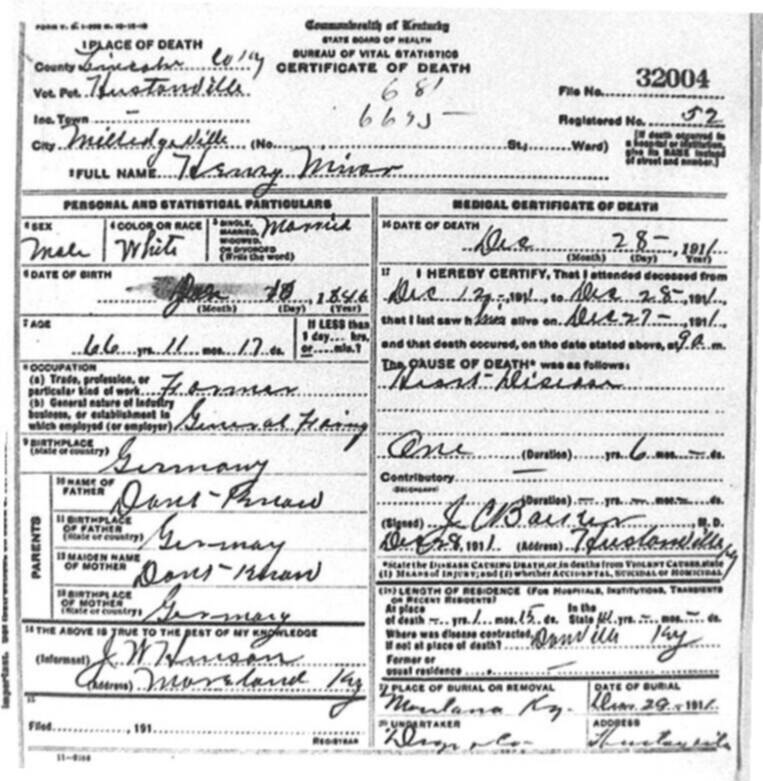 Commonwealth of Kentucky
STATE BOARD OF HEALTH
BUREAU OF VITAL STATISTICS
CERTIFICATE OF DEATH
1 PLACE OF DEATH
County Lincoln Co Ky
Vot. Pct. Hustonville
Inc. Town —
City Milledgeville (No. St.; Ward)
681
6695
File No. 32004
Registered No. 52
[If death occurred in a hospital or institution, give its NAME instead of street and number.]
2 FULL NAME Henry Minor
PERSONAL AND STATISTICAL PARTICULARS
3 SEX
Male
4 COLOR OR RACE
White
5 SINGLE, MARRIED, WIDOWED, OR DIVORCED (Write the word)
Married
6 DATE OF BIRTH
Jan
(Month) (Day) (Year)
7 AGE
66 yrs. 11 mos. 17 ds.
If LESS than 1 day.... hrs. or.... min.?
8 OCCUPATION
(a) Trade, profession, or particular kind of work Farmer
(b) General nature of industry business, or establishment in which employed (or employer) General
9 BIRTHPLACE (State or country)
Germany
PARENTS
10 NAME OF FATHER
Dont Know
11 BIRTHPLACE OF FATHER (State or country)
Germany
12 MAIDEN NAME OF MOTHER
Dont Know
13 BIRTHPLACE OF MOTHER (State or country)
Germany
14 THE ABOVE IS TRUE TO THE BEST OF MY KNOWLEDGE
(Informant) J. W. Hinson
(Address) Moreland Ky
15
Filed............, 191....
REGISTRAR
11-9184
MEDICAL CERTIFICATE OF DEATH
16 DATE OF DEATH
Dec 28 1911
(Month) (Day) (Year)
17 I HEREBY CERTIFY, That I attended deceased from
Dec 12, 1911, to Dec 28, 1911,
that I last saw him alive on Dec 27, 1911,
and that death occured, on the date stated above, at 9 a m.
The CAUSE OF DEATH* was as follows:
Heart Disease
One (Duration) yrs. 6 mos. — ds.
Contributory —
(SECONDARY)
(Duration) — yrs. — mos. — ds.
(Signed) M. D.
Dec 28, 1911 (Address) Hustonville Ky
*State the DISEASE CAUSING DEATH, or, in deaths from VIOLENT CAUSES, state (1) MEANS OF INJURY; and (2) whether ACCIDENTAL, SUICIDAL or HOMICIDAL
LENGTH OF RESIDENCE (FOR HOSPITALS, INSTITUTIONS, TRANSIENTS OR RECENT RESIDENTS)
At place of death — yrs. 1 mos. 15 ds. In the State yrs. — mos. — ds.
Where was disease contracted, If not at place of death? Danville Ky
Former or usual residence —
19 PLACE OF BURIAL OR REMOVAL
Ky.
DATE OF BURIAL
28 1911
20 UNDERTAKER
& Co
ADDRESS
Hustonville